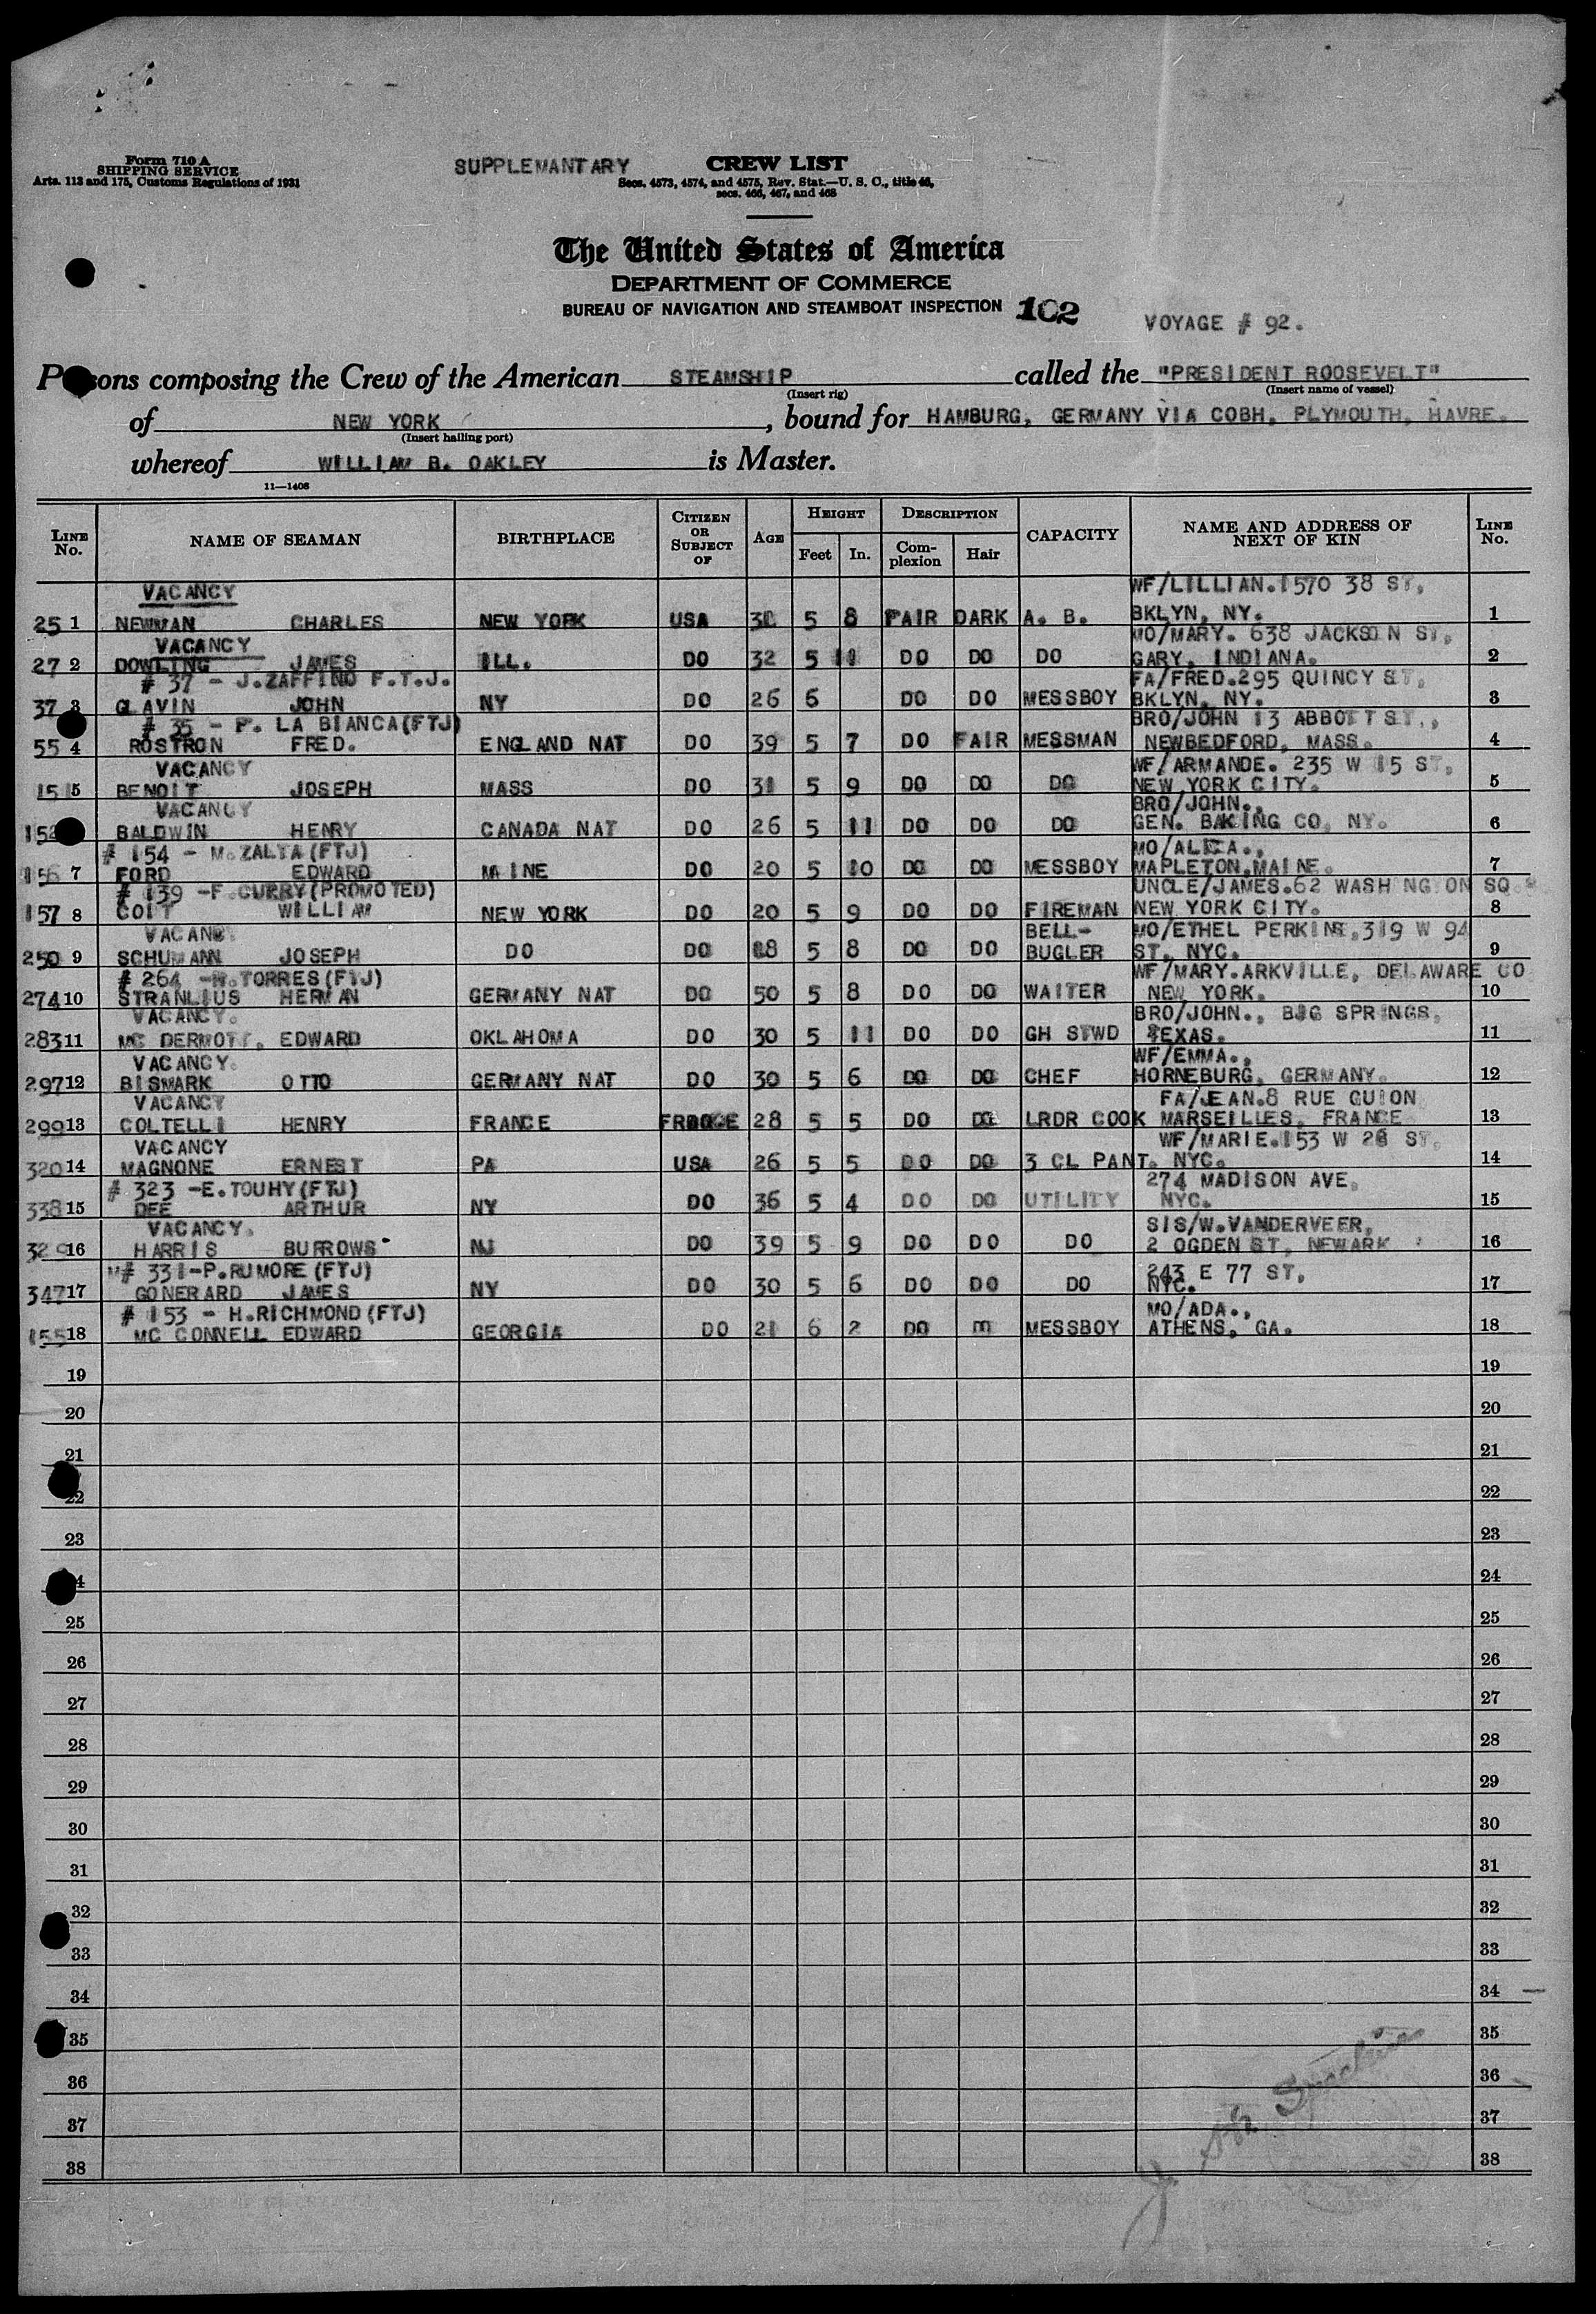 Form 710 A
SHIPPING SERVICE
Arts. 113 and 175, Customs Regulations of 1931
SUPPLEMANTARY CREW LIST
Secs. 4573, 4574, and 4575, Rev. Stat.—U. S. C., title 46,
secs. 466, 467, and 468
The United States of America
DEPARTMENT OF COMMERCE
BUREAU OF NAVIGATION AND STEAMBOAT INSPECTION 102
VOYAGE # 92.
Persons composing the Crew of the American STEAMSHIP called the "PRESIDENT ROOSEVELT"
(Insert rig) (Insert name of vessel)
of NEW YORK, bound for HAMBURG, GERMANY VIA COBH, PLYMOUTH, HAVRE.
(Insert hailing port)
whereof WILLIAM B. OAKLEY is Master.
11—1408
LINE No. NAME OF SEAMAN BIRTHPLACE CITIZEN OR SUBJECT OF AGE HEIGHT Feet In. DESCRIPTION Complexion Hair CAPACITY NAME AND ADDRESS OF NEXT OF KIN LINE No.
VACANCY WF/LILLIAN.1570 38 ST,
25 1 NEWMAN CHARLES NEW YORK USA 5 8 FAIR DARK A. B. BKLYN, NY. 1
VACANCY MO/MARY. 638 JACKSON ST,
27 2 DOWLING JAMES ILL. DO 32 5 11 DO DO DO GARY, INDIANA. 2
# 37 - J.ZAFFINO F.T.J. FA/FRED.295 QUINCY ST,
37 3 GLAVIN JOHN NY DO 26 6 DO DO MESSBOY BKLYN, NY. 3
# 35 - P. LA BIANCA(FTJ) BRO/JOHN 13 ABBOTT ST.,
55 4 ROSTRON FRED. ENGLAND NAT DO 39 5 7 DO FAIR MESSMAN NEWBEDFORD, MASS. 4
VACANCY WF/ARMANDE. 235 W 15 ST,
151 5 BENOIT JOSEPH MASS DO 31 5 9 DO DO DO NEW YORK CITY. 5
VACANCY BRO/JOHN.,
152 BALDWIN HENRY CANADA NAT DO 26 5 11 DO DO DO GEN. BAKING CO, NY. 6
# 154 - M.ZALTA(FTJ) MO/ALICA.,
156 7 FORD EDWARD MAINE DO 20 5 10 DO DO MESSBOY MAPLETON,MAINE. 7
# 139 -F.CURRY(PROMOTED) UNCLE/JAMES.62 WASHINGTON SQ.
157 8 COIT WILLIAM NEW YORK DO 20 5 9 DO DO FIREMAN NEW YORK CITY. 8
VACANC. BELL- MO/ETHEL PERKINS,319 W 94
250 9 SCHUMANN JOSEPH DO DO 18 5 8 DO DO BUGLER ST, NYC. 9
# 264 -H.TORRES(FTJ) WF/MARY.ARKVILLE, DELAWARE CO
274 10 STRANLIUS HERMAN GERMANY NAT DO 50 5 8 DO DO WAITER NEW YORK. 10
VACANCY. BRO/JOHN., BIG SPRINGS,
283 11 MC DERMOTT, EDWARD OKLAHOMA DO 30 5 11 DO DO GH STWD TEXAS. 11
VACANCY. WF/EMMA.,
297 12 BISMARK OTTO GERMANY NAT DO 30 5 6 DO DO CHEF HORNEBURG, GERMANY. 12
VACANCY FA/JEAN.8 RUE GUION
299 13 COLTELLI HENRY FRANCE FRANCE 28 5 5 DO DO LRDR COOK MARSEILLES, FRANCE 13
VACANCY WF/MARIE.153 W 26 ST,
320 14 MAGNONE ERNEST PA USA 26 5 5 DO DO 3 CL PANT. NYC. 14
# 323 -E.TOUHY(FTJ) 274 MADISON AVE,
338 15 DEE ARTHUR NY DO 36 5 4 DO DO UTILITY NYC. 15
VACANCY. SIS/W.VANDERVEER,
329 16 HARRIS BURROWS NJ DO 39 5 9 DO DO DO 2 OGDEN ST, NEWARK 16
# 331-P.RUMORE(FTJ) 243 E 77 ST,
347 17 GONERARD JAMES NY DO 30 5 6 DO DO DO NYC. 17
# 153 - H.RICHMOND(FTJ) MO/ADA.,
155 18 MC CONNELL EDWARD GEORGIA DO 21 6 2 DO m MESSBOY ATHENS, GA. 18
19 19
20 20
21 21
22 22
23 23
24 24
25 25
26 26
27 27
28 28
29 29
30 30
31 31
32 32
33 33
34 34
35 35
36 36
37 37
38 38